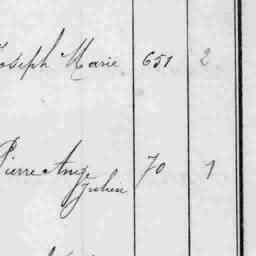 Joseph Marie 651 2
Pierre Ange 70 1
Julien